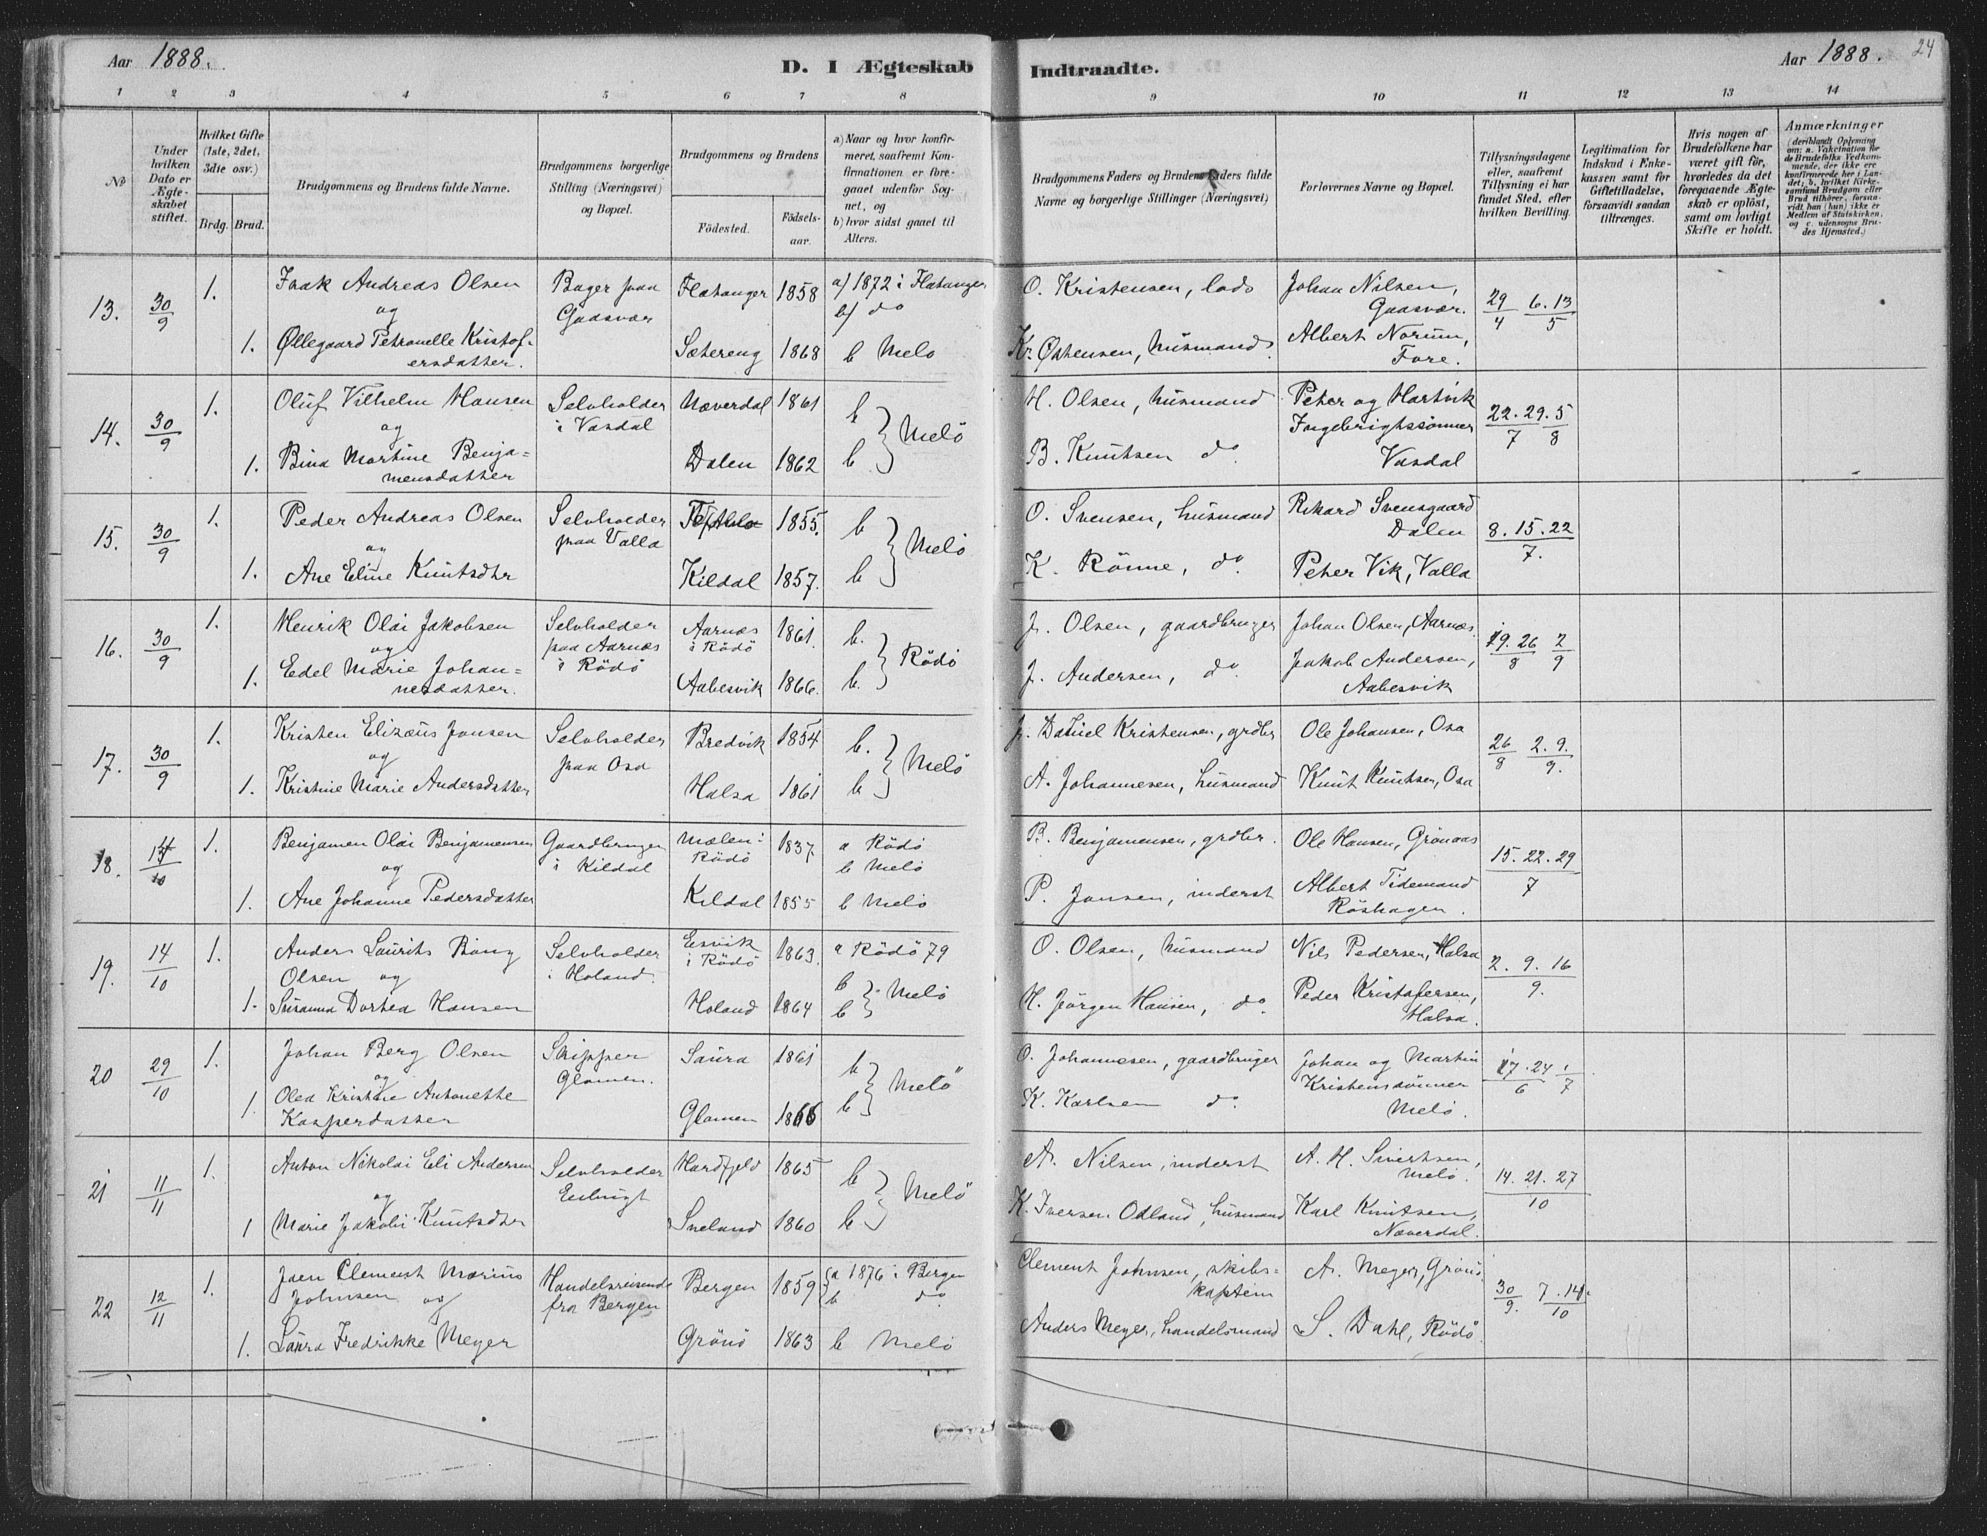 Aar 1888.
D. I Ægteskab Indtraadte.
Aar 1888.
24
1 2 3 4 5 6 7 8 9 10 11 12 13 14
No
Under hvilken Dato er Ægteskabet stiftet.
Hvilket Gifte (1ste, 2det, 3dte osv.)
Brdg. Brud.
Brudgommens og Brudens fulde Navne.
Brudgommens borgerlige Stilling (Næringsvei) og Bopæl.
Brudgommens og Brudens
Fødested.
Fødselsaar.
a) Naar og hvor konfirmeret, saafremt Konfirmationen er foregaaet udenfor Sognet, og
b) hvor sidst gaaet til Alters.
Brudgommens Faders og Brudens Faders fulde Navne og borgerlige Stillinger (Næringsvei)
Forlovernes Navne og Bopæl.
Tillysningsdagene eller, saafremt Tillysning ei har fundet Sted, efter hvilken Bevilling.
Legitimation for Indskud i Enkekassen samt for Giftetilladelse, forsaavidt saadan tiltrænges.
Hvis nogen af Brudefolkene har været gift før, hvorledes da det foregaaende Ægteskab er opløst, samt om lovligt Skifte er holdt.
Anmærkninger
(deriblandt Oplysning om: a. Vakcination for de Brudefolks Vedkommende, der ikke ere konfirmerede her i Landet; b. hvilket Kirkesamfund Brudgom eller Brud tilhører, forsaavidt han (hun) ikke er Medlem af Statskirken, og c. udensogns Brudes Hjemsted.)
13. 30/9 1. Isak Andreas Olsen Bager paa Gaasvær Flatanger 1858 a) 1872 i Flatanger b) do O. Kristensen, lods Johan Nilsen, Gaasvær. 29/4 6.13/5
og
1. Øllegaard Petronelle Kristofersdatter. Sætereng 1868 b Melø Kr. Østensen, husmand. Albert Norum, Fore.
14. 30/9 1. Oluf Vilhelm Hansen Selvholder i Vasdal Næverdal 1861 b Melø H. Olsen, husmand Peter og Hartvik Ingebrigtssønner Vasdal 22.29/7 5/8
og
1. Bina Martine Benjamensdatter Dalen 1862 b B. Knutsen do.
15. 30/9 1. Peder Andreas Olsen Selvholder paa Valla 1855. b Melø O. Svensen, husmand Rikard Svensgaard Dalen 8.15.22/7.
og
1. Ane Eline Knutsdtr Kildal 1857. b K. Rønne, do. Peter Vik, Valla
16. 30/9 1. Henrik Olai Jakobsen Selvholder paa Aarnæs i Rödö Aarnæs i Rödö 1861. b. Rödö J. Olsen, gaardbruger Johan Olsen, Aarnæs. 19.26/8 2/9
og
1. Edel Marie Johannesdatter. Aabesvik 1866. b. J. Andersen, do. Jakob Andersen, Aabesvik
17. 30/9 1. Kristen Elizæus Jonsen Selvholder paa Osa Bredvik 1854 b. Melö J. Daniel Kristensen, grdbr Ole Johansen, Osa 26/8 2.9./9.
og
1. Kristine Marie Andersdatter Halsa 1861 b A. Johannesen, husmand Knut Knutsen, Osa
18. 14/10 1. Benjamen Olai Benjamensen Gaardbruger i Kildal Mælen i Rödö 1837. a Rödö b Melö B. Benjamensen, grdbr. Ole Hansen, Grönaas 15.22.29/7
og
1. Ane Johanne Pedersdatter Kildal 1855 b Melö P. Jonsen, inderst Albert Tidemand Röshagen.
19. 14/10 1. Anders Laurits Bang Olsen og Selvholder i Holand. Esvik i Rödö 1863. a Rödö 79 b Melö O. Olsen, husmand Nils Pedersen, Halsa 2.9.16/9.
1. Susanna Dortea Hansen Holand 1864 b H. Jörgen Hansen, do. Peder Kristofersen, Halsa.
20 29/10 1. Johan Berg Olsen Skipper Glomen. Saura 1861 b Melö O. Johannesen, gaardbruger Johan og Martin Kristenssønner Melö. 17.24/6 1/7
og
1. Olea Kristine Antonette Kaspersdatter Glomen 1866 b K. Karlsen do.
21 11/11 1. Anton Nikolai Eli Andersen Selvholder Enbugt Hardfjeld 1865 b Melö A. Nilsen, inderst A. H. Sivertsen, Melö. 14.21.27/10
og
1 Marie Jakobi Knutsdtr Sneland 1860 b. K. Iversen Odland, husmand Karl Knutsen, Næverdal.
22 12/11 1. Joen Clement Marius Johnsen og Handelsreisende fra Bergen Bergen 1859 a 1876 i Bergen b do. Clement Johnsen, skibskaptein A. Meyer, Grönö 30/9. 7.14/10
1. Laura Fredrikke Meyer Grönö 1863 b Melö Anders Meyer, handelsmand S. Dahl, Rödö.